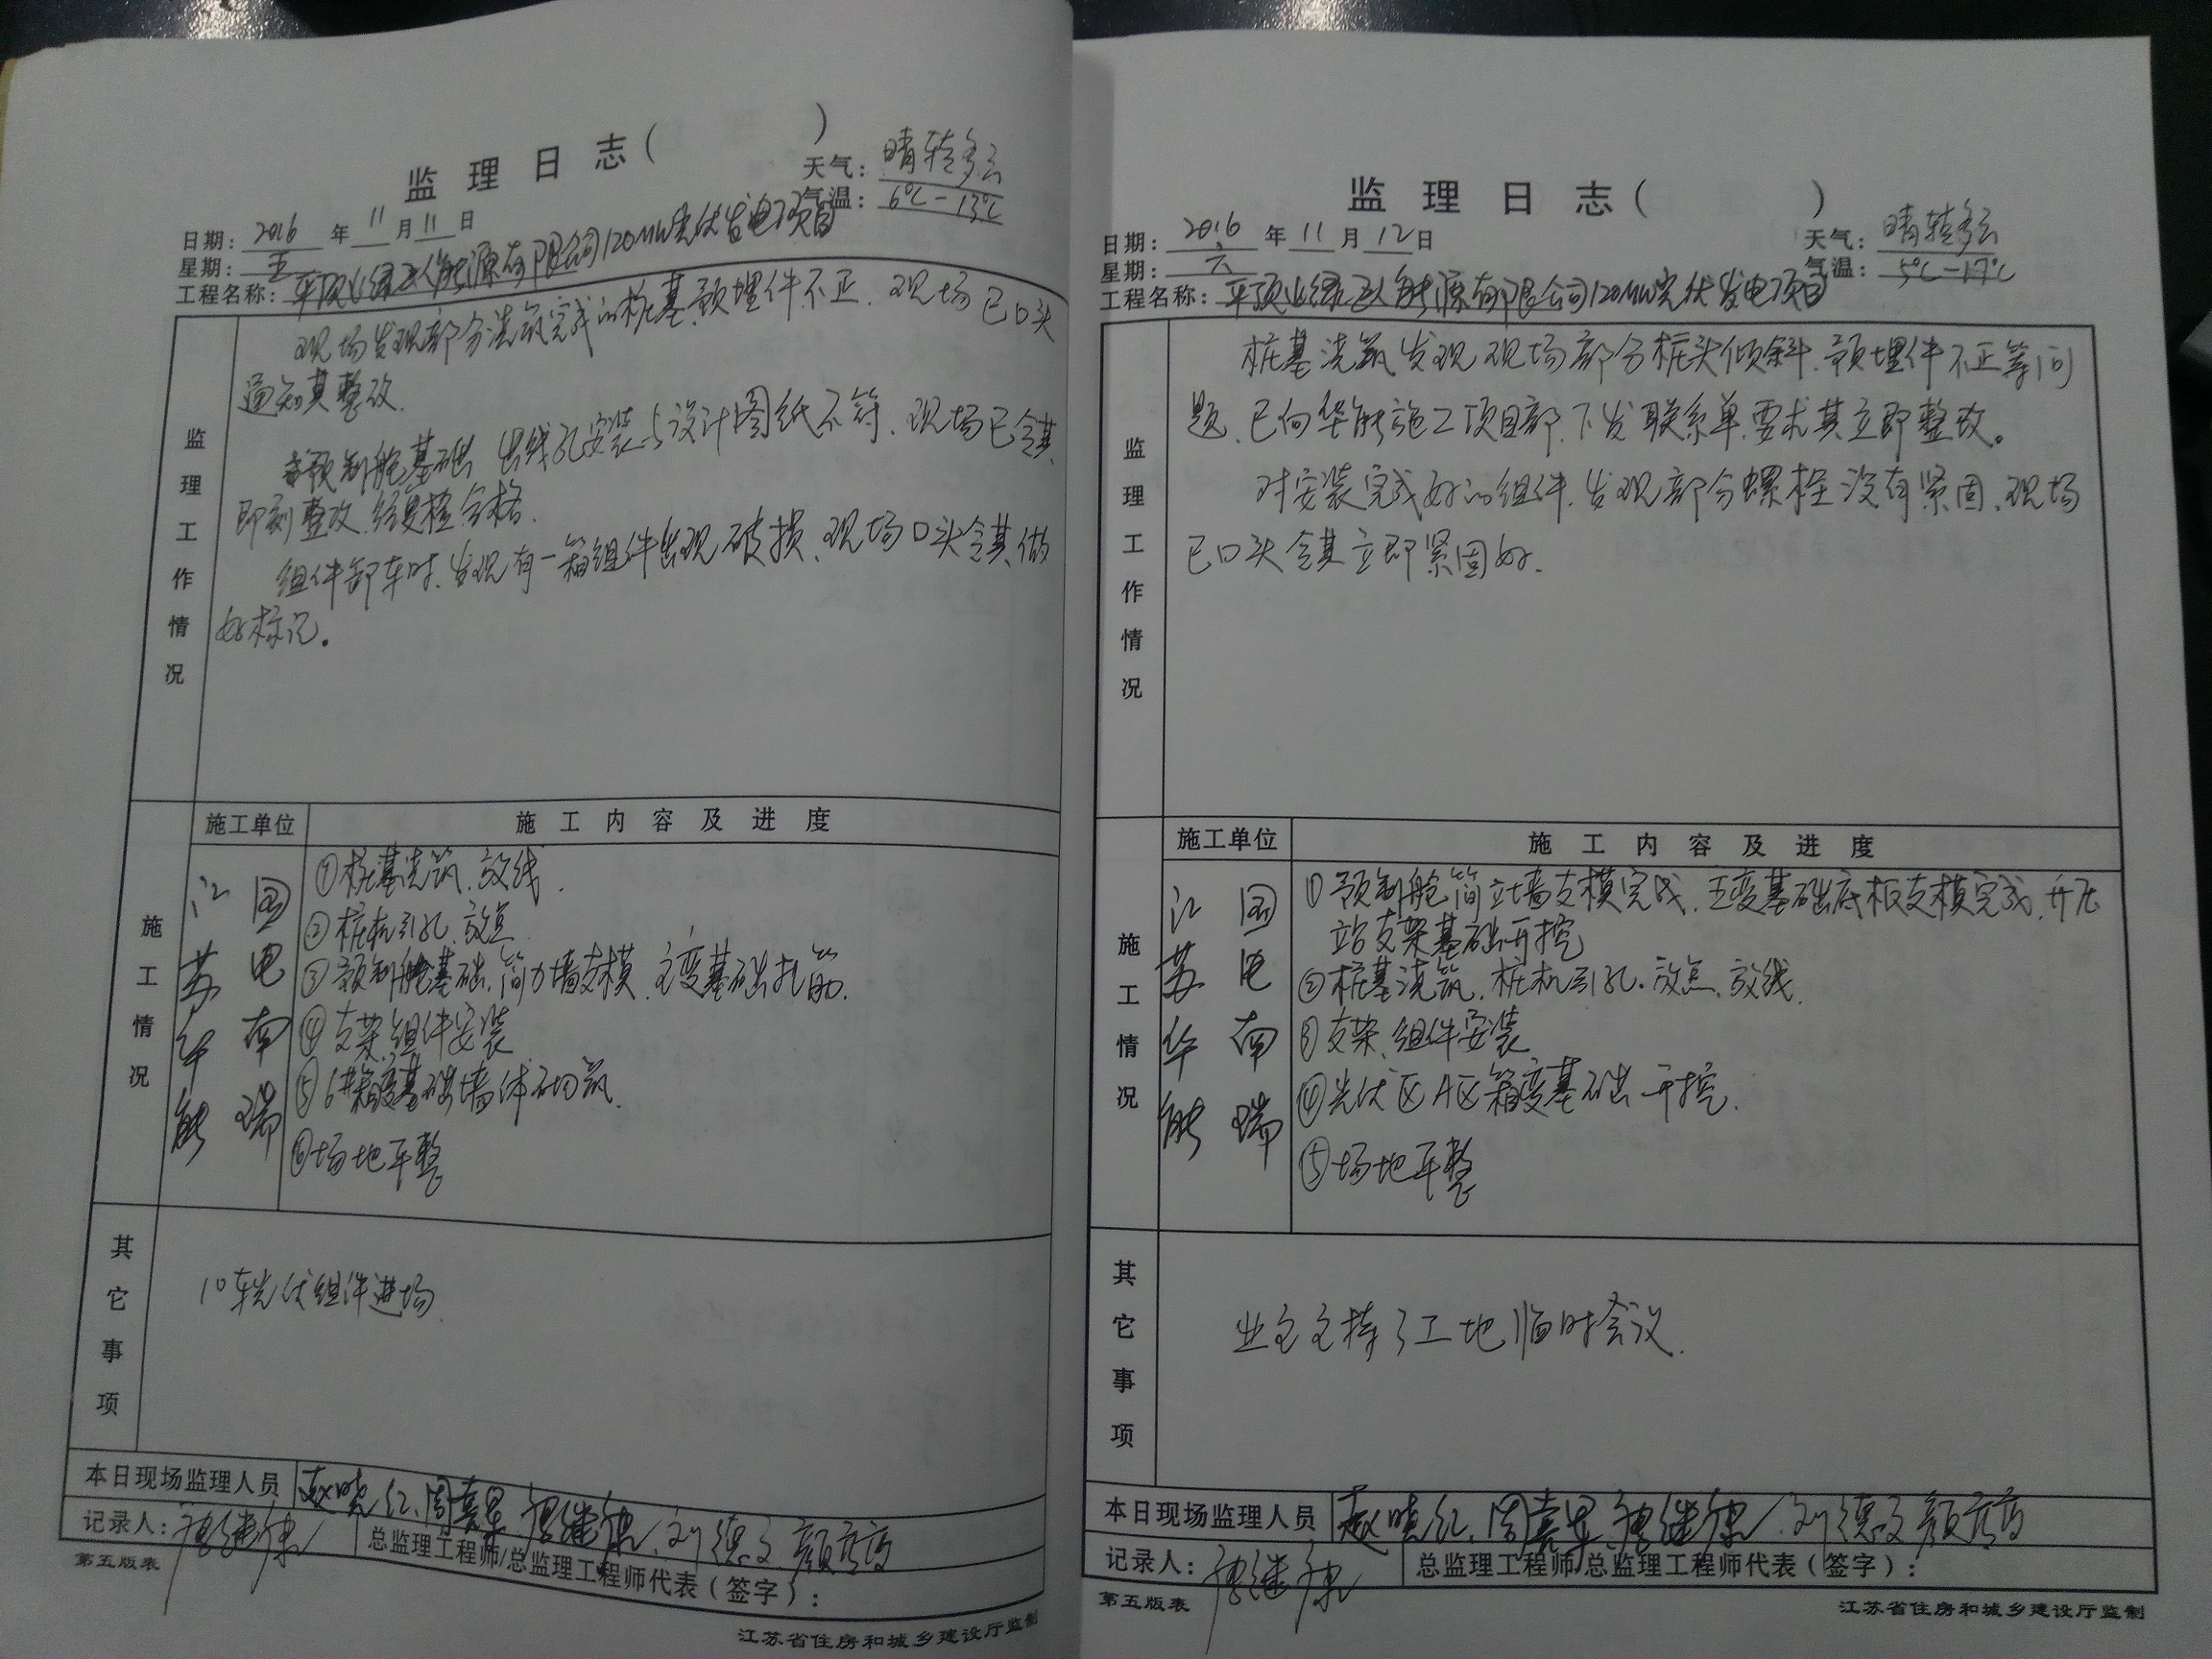 监理日志（ ）
日期：2016年11月11日 天气：晴转多云
星期：五 气温：6℃-13℃
工程名称：平顶山绿 能源有限公司120MW光伏发电项目
监理工作情况
现场发现部分浇筑完成的桩基，预埋件不正，现场已口头
通知其整改。
预制舱基础，出线孔安装与设计图纸不符，现场已令其
即刻整改，经复检合格。
组件卸车时，发现有一箱组件出现破损，现场口头令其做
好标记。
施工情况
施工单位 施工内容及进度
江苏华能
国电南瑞
①桩基浇筑、放线。
②桩机引孔、放点
③预制舱基础，筒力墙支模，主变基础扎筋。
④支架、组件安装
⑤6#箱变基础墙体砌筑。
⑥场地平整
其它事项
10车光伏组件进场。
本日现场监理人员 赵晓红、周嘉 、唐继康、刘德 颜
记录人：唐继康 总监理工程师/总监理工程师代表（签字）：
第五版表 江苏省住房和城乡建设厅监制
监理日志（ ）
日期：2016年11月12日 天气：晴转多云
星期：六 气温：5℃-17℃
工程名称：平顶山绿 能源有限公司120MW光伏发电项目
监理工作情况
桩基浇筑，发现现场部分桩头倾斜，预埋件不正等问
题，已向华能施工项目部，下发联系单，要求其立即整改。
对安装完成好的组件，发现部分螺栓没有紧固，现场
已口头令其立即紧固好。
施工情况
施工单位 施工内容及进度
江苏华能
国电南瑞
①预制舱筒立墙支模完成，主变基础底板支模完成，升压
站支架基础开挖
②桩基浇筑，桩机引孔、放点、放线。
③支架、组件安装
④光伏区A区箱变基础开挖。
⑤场地平整
其它事项
业主主持了工地临时会议。
本日现场监理人员 赵晓红、周嘉 、唐继康、刘德 颜
记录人：唐继康 总监理工程师/总监理工程师代表（签字）：
第五版表 江苏省住房和城乡建设厅监制